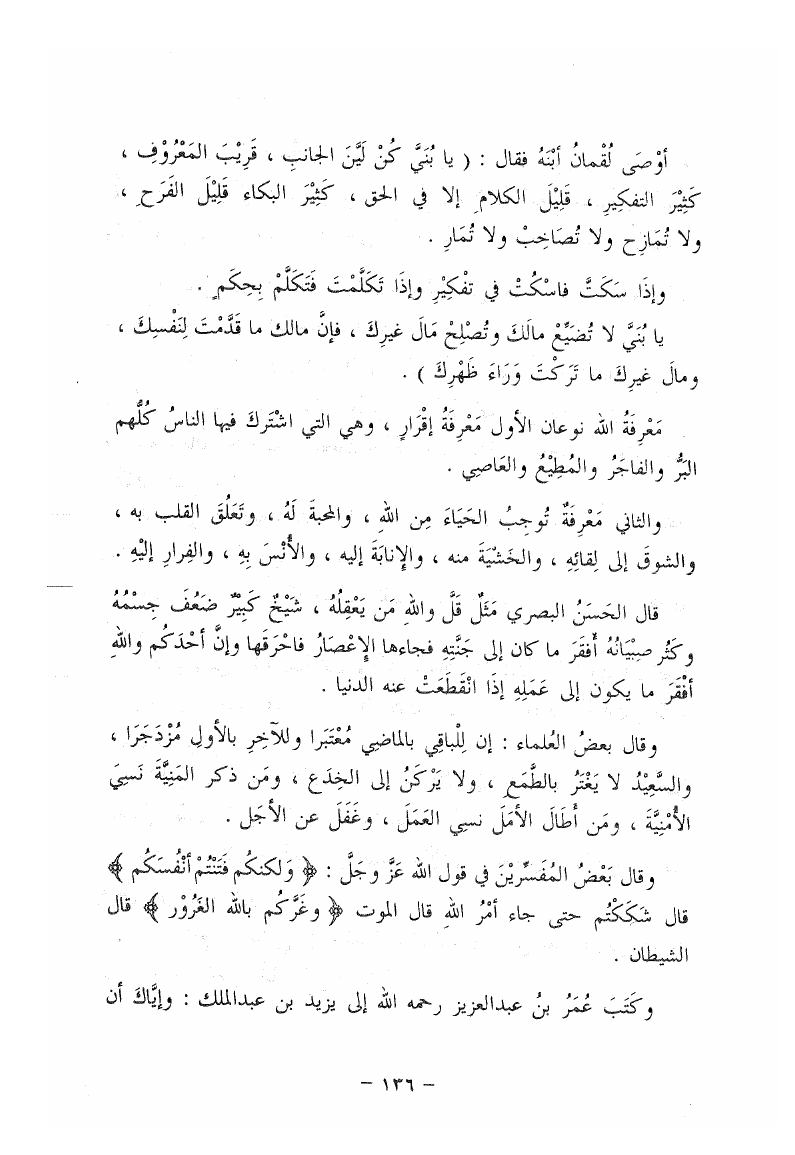 أوْصَى لُقْمانُ أبْنَهُ فقال : ( يا بُنَيَّ كُنْ لَيَّنَ الجانبِ ، قَرِيْبَ المَعْرُوْفِ ،
كَثِيْرَ التفكِيرِ ، قَلِيْلَ الكلامِ إلا في الحق ، كَثِيْرَ البكاء قَلِيْلَ الفَرَحِ ،
ولا تُمَازِح ولا تُصَاخِبْ ولا تُمَارِ .
وإذَا سَكَتَّ فاسْكُتْ في تفْكِيْرِ وإذَا تَكَلَّمْتَ فَتَكَلَّمْ بِحِكَمٍ .
يا بُنَيَّ لا تُضَيِّعْ مالَكَ وتُصْلِحْ مَالَ غيرِكَ ، فإنَّ مالك ما قَدَّمْتَ لِنَفْسِكَ ،
ومالَ غيرِكَ ما تَرَكْتَ وَرَاءَ ظَهْرِكَ ) .
مَعْرِفَةُ الله نوعان الأول مَعْرِفَةُ إقْرَارٍ ، وهي التي اشْتَركَ فيها الناسُ كُلُّهم
البَرُّ والفاجَرُ والمُطِيْعُ والعَاصِي .
والثاني مَعْرِفَةٌ تُوجِبُ الحَيَاءَ مِن اللهِ ، والمحبةَ لَهُ ، وتَعَلُقَ القلب به ،
والشوقَ إلى لِقائِهِ ، والخَشْيَةَ منه ، والإِنابَةَ إليه ، والأُنْسَ بِهِ ، والفِرارِ إليْهِ .
قال الحَسَنُ البصري مَثَلٌ قَلَّ واللهِ مَن يَعْقِلُهُ ، شَيْخٌ كَبِيْرٌ ضَعُفَ جِسْمُهُ
وكَثُر صِبْيَانُهُ أَفقَرَ ما كان إلى جَنَّتِهِ فجاءها الإِعْصَارُ فاحْرَقَها وإنَّ أحْدَكُم واللهِ
أفْقَرَ ما يكون إلى عَمَلِهِ إذَا انْقَطَعَتْ عنه الدنيا .
وقال بعضُ العُلماء : إن لِلْباقِي بالماضِيِ مُعْتَبرا وللآخِرِ بالأولِ مُزْدَجَرَا ،
والسَّعِيْدُ لا يَغْتَرُ بالطَّمَعِ ، ولا يَرْكَنُ إلى الخِدَع ، ومَن ذكر المَنِيَّةَ نَسِيَ
الأُمْنِيَّةَ ، ومَن أطَالَ الأمَلَ نسيِ العَمَلَ ، وغَفَلَ عن الأجَل .
وقال بَعْضُ المُفَسِّرِيْنَ في قول الله عَزَّ وجَلَّ : ﴿ وَلكنكُم فَتَنْتُمْ أنْفُسَكُم ﴾
قال شَكَكْتُم حتى جاء أمْرُ اللهِ قال الموت ﴿ وغَرَّكُم بالله الغَرُوْر ﴾ قال
الشيطان .
وكَتَبَ عُمَرُ بنُ عبدالعزيز رحمه الله إلى يزيد بن عبدالملك : وإيَّاكَ أن
– ١٣٦ –